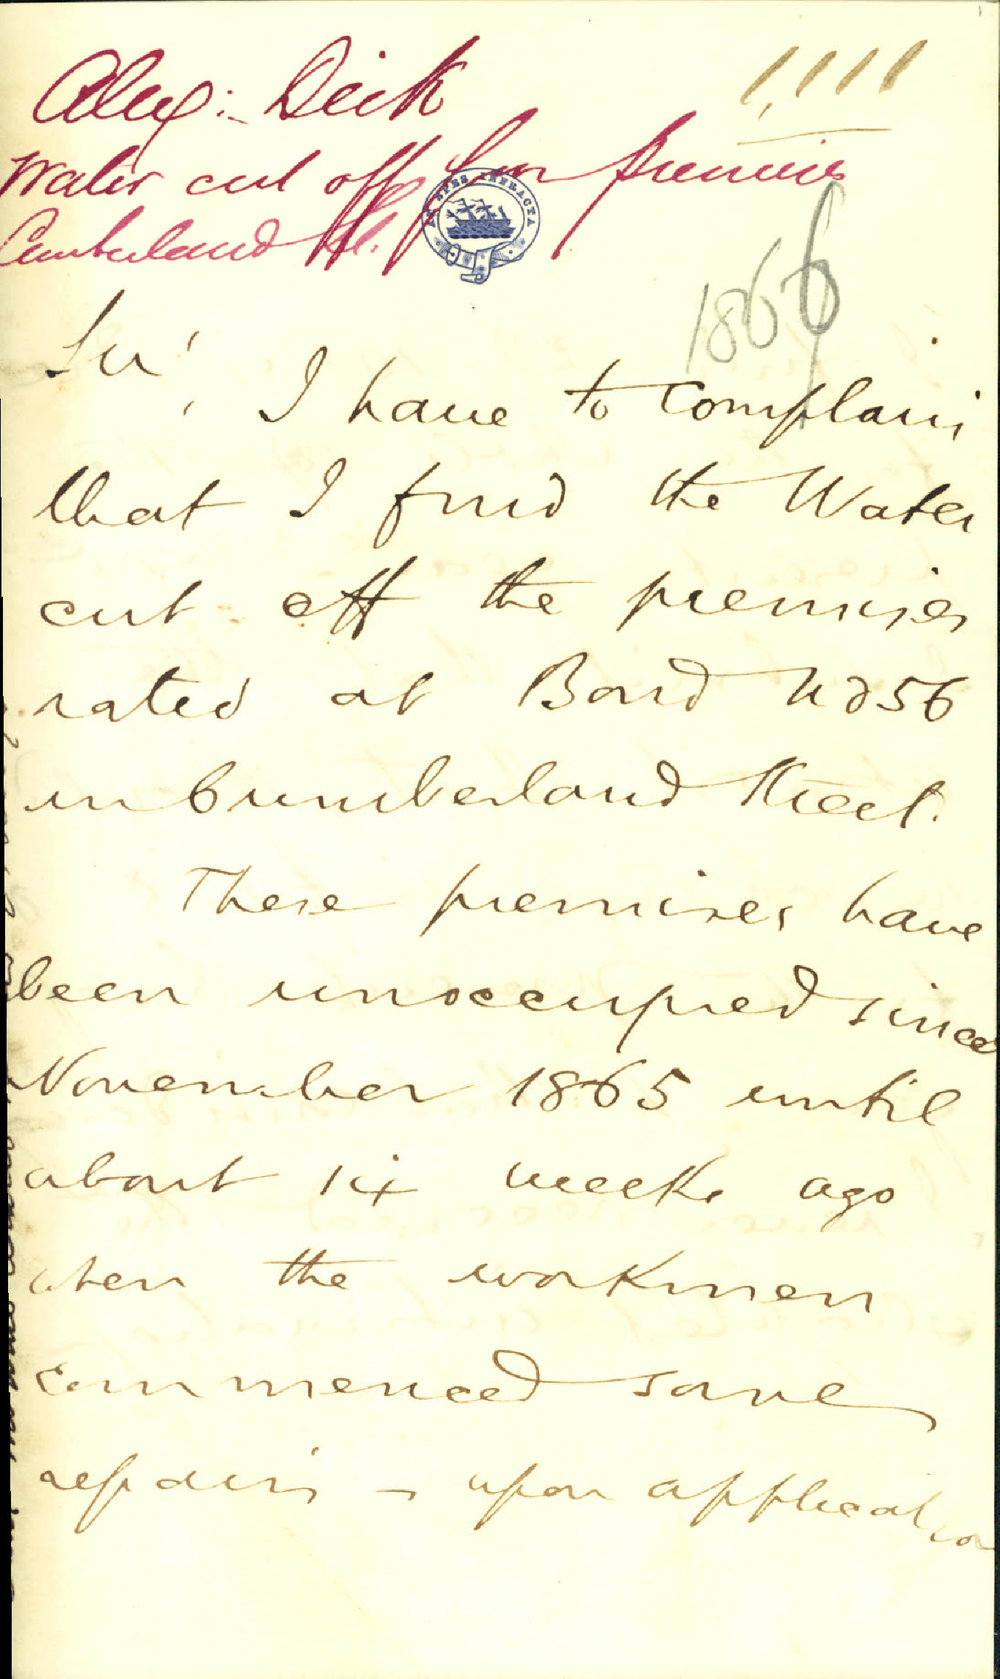 Alex: Dick
1,111
Water cut off from premises
Cumberland St.
1866
Sir,
I have to complain
that I find the Water
cut off the premises
rated at Bond No 56
in Cumberland Street.
These premises have
been unoccupied since
November 1865 until
about six weeks ago
when the workmen
commenced some
repairs – upon application